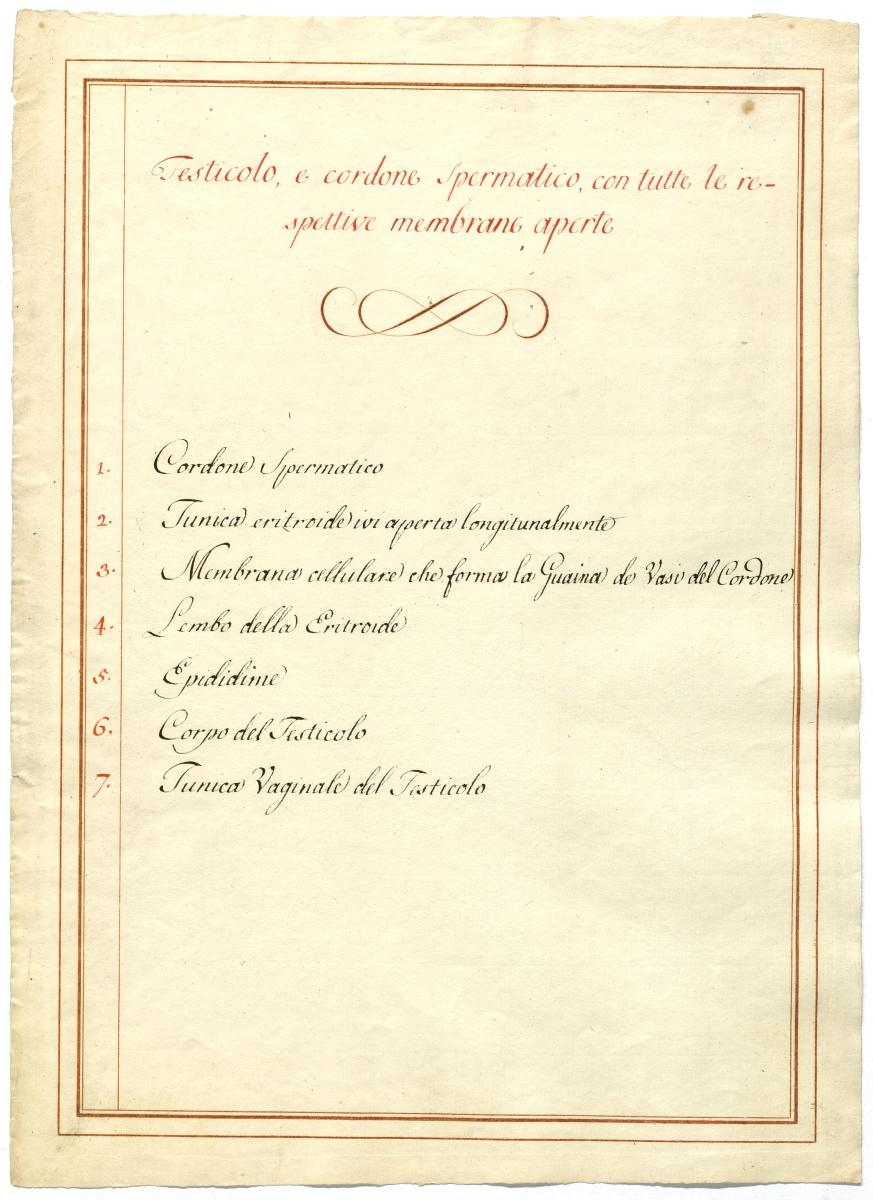 Testicolo, e cordone Spermatico, con tutte le re-
spettive membrane aperte
1. Cordone Spermatico
2. Tunica eritroide ivi aperta longitunalmente
3. Membrana cellulare che forma la Guaina de Vasi del Cordone
4. Lembo della Eritroide
5. Epididime
6. Corpo del Testicolo
7. Tunica Vaginale del Testicolo